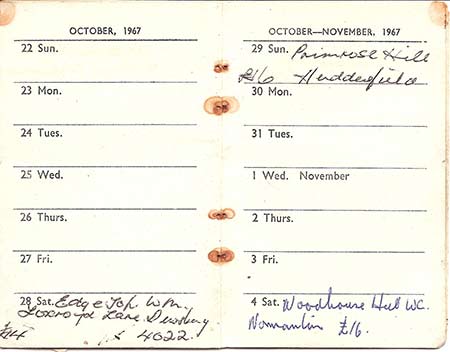 OCTOBER, 1967
22 Sun.
23 Mon.
24 Tues.
25 Wed.
26 Thurs.
27 Fri.
28 Sat. Edge Top W.M.
Foxroyd Lane Dewsbury
£14 4022
OCTOBER—NOVEMBER, 1967
29 Sun. Primrose Hill
£16 Hudderfield
30 Mon.
31 Tues.
1 Wed. November
2 Thurs.
3 Fri.
4 Sat. Woodhouse Hill WC.
Normanton £16.